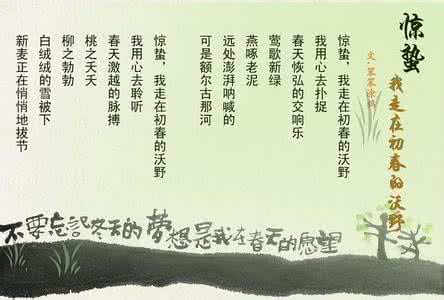 惊蛰
我走在初春的沃野
文·笨笨
惊蛰，我走在初春的沃野
我用心去扑捉
春天恢弘的交响乐
莺歌新绿
燕啄老泥
远处澎湃呐喊的
可是额尔古那河
惊蛰，我走在初春的沃野
我用心去聆听
春天激越的脉搏
桃之夭夭
柳之勃勃
白绒绒的雪被下
新麦正在悄悄地拔节
不要忘記冬天的夢想是我在春天的愿望